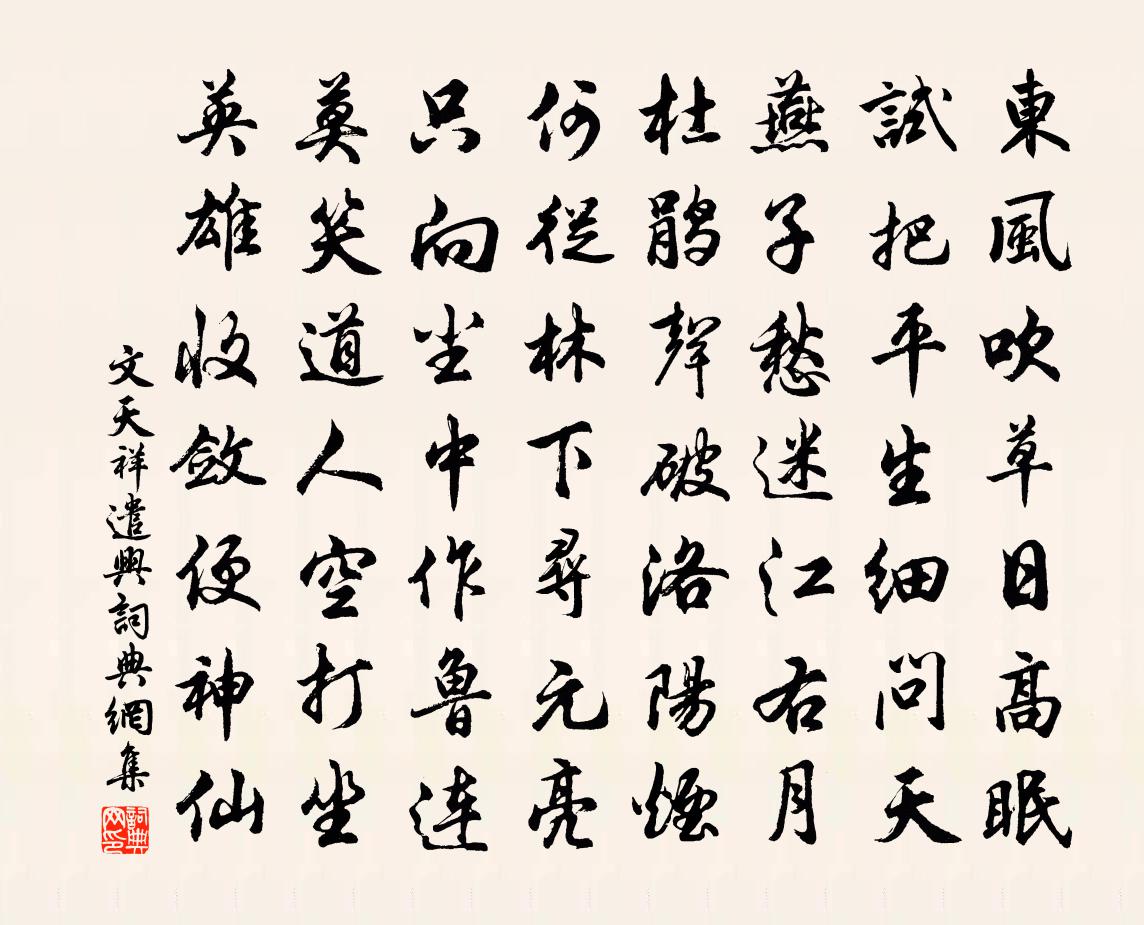 東風吹草日高眠
試把平生細問天
燕子愁迷江右月
杜鹃聲破洛陽煙
何從林下尋元亮
只向尘中作魯連
莫笑道人空打坐
英雄收斂便神仙
文天祥遣興詞典網集
詞典網印